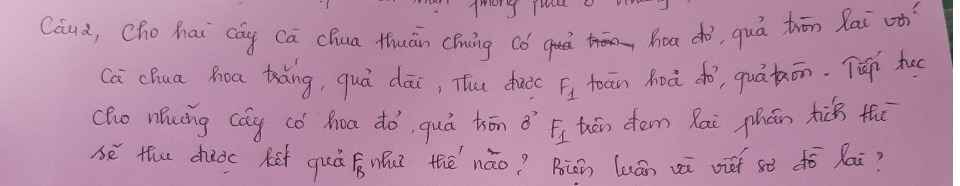 Câu 2, Cho hai cây cà chua thuần chủng có hoa đỏ, quả tròn lai với
Cà chua hoa trắng, quả dài, Thu được F1 toàn hoa đỏ, quả tròn. Tiếp tục
Cho những cây có hoa đỏ, quả tròn ở F1 trên đem lai phân tích thì
sẽ thu được kết quả FB như thế nào? Biện luận và viết sơ đồ lai?